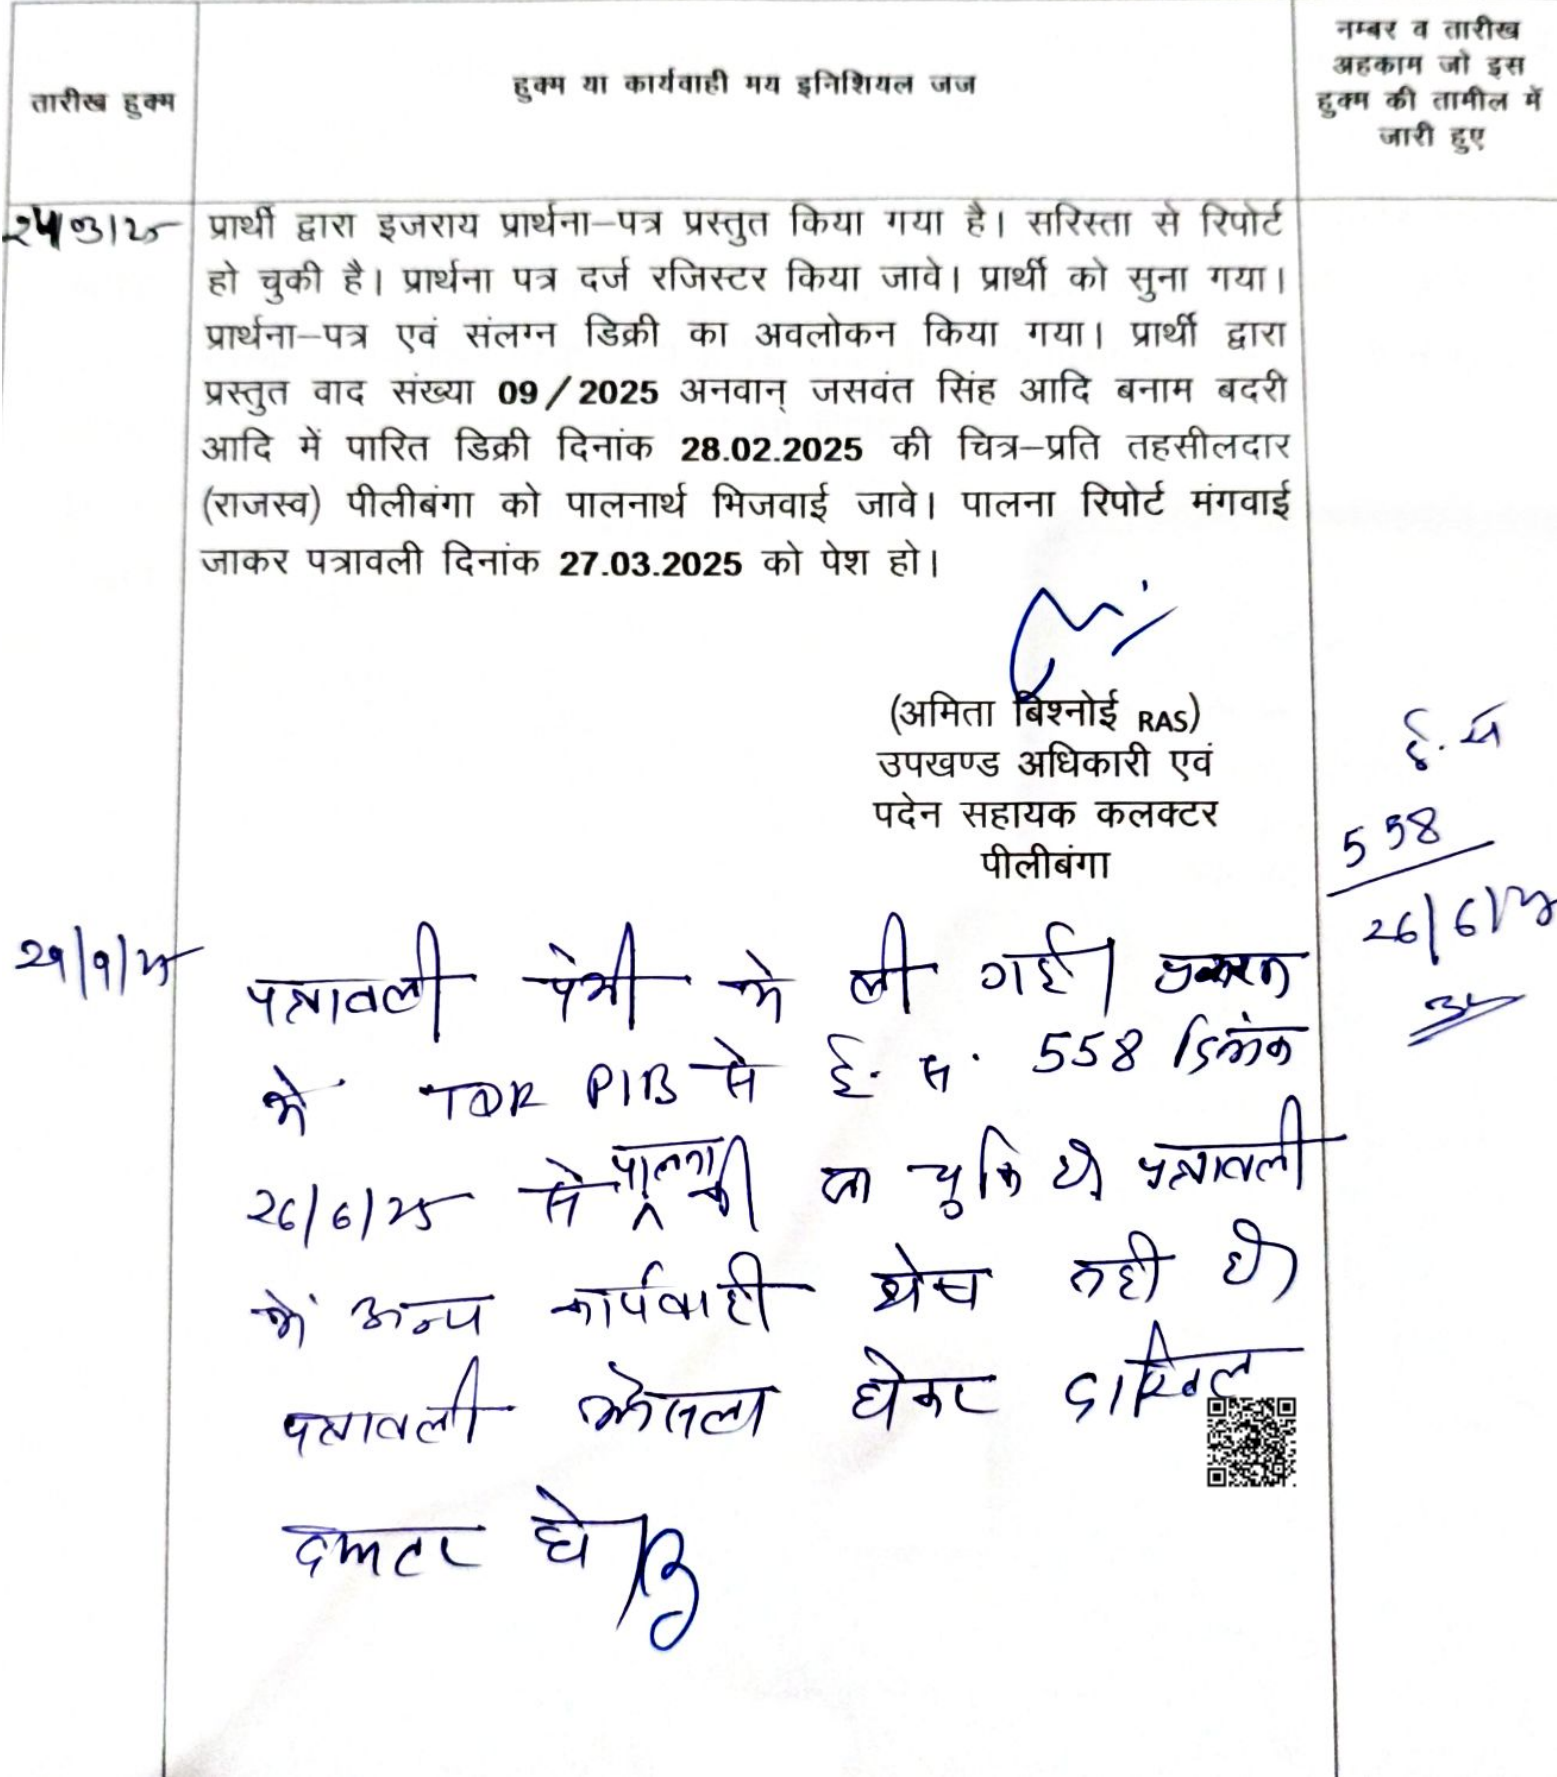 तारीख हुक्म
हुक्म या कार्यवाही मय इनिशियल जज
नम्बर व तारीख
अहकाम जो इस
हुक्म की तामील में
जारी हुए
24/03/25
प्रार्थी द्वारा इजराय प्रार्थना–पत्र प्रस्तुत किया गया है। सरिस्ता से रिपोर्ट
हो चुकी है। प्रार्थना पत्र दर्ज रजिस्टर किया जावे। प्रार्थी को सुना गया।
प्रार्थना–पत्र एवं संलग्न डिक्री का अवलोकन किया गया। प्रार्थी द्वारा
प्रस्तुत वाद संख्या 09/2025 अनवान् जसवंत सिंह आदि बनाम बदरी
आदि में पारित डिक्री दिनांक 28.02.2025 की चित्र–प्रति तहसीलदार
(राजस्व) पीलीबंगा को पालनार्थ भिजवाई जावे। पालना रिपोर्ट मंगवाई
जाकर पत्रावली दिनांक 27.03.2025 को पेश हो।
(अमिता बिश्नोई RAS)
उपखण्ड अधिकारी एवं
पदेन सहायक कलक्टर
पीलीबंगा
इ. स
558
26/6/25
29/9/25
पत्रावली पेशी में ली गई। प्रकरण
में TDR PIB से इ. स. 558 दिनांक
26/6/25 से पालना की जा चुकि है। पत्रावली
में अन्य कार्यवाही शेष नही है।
पत्रावली फैसला होकर दाखिल
दफ्तर हो।